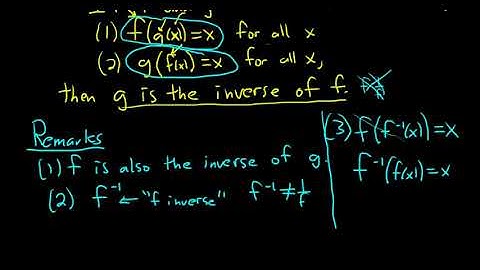 (1) f(g(x))=x for all x
(2) g(f(x))=x for all x,
then g is the inverse of f.
Remarks
(1) f is also the inverse of g.
(2) f⁻¹ ← "f inverse" f⁻¹ ≠ 1/f
(3) f(f⁻¹(x))=x
f⁻¹(f(x))=x